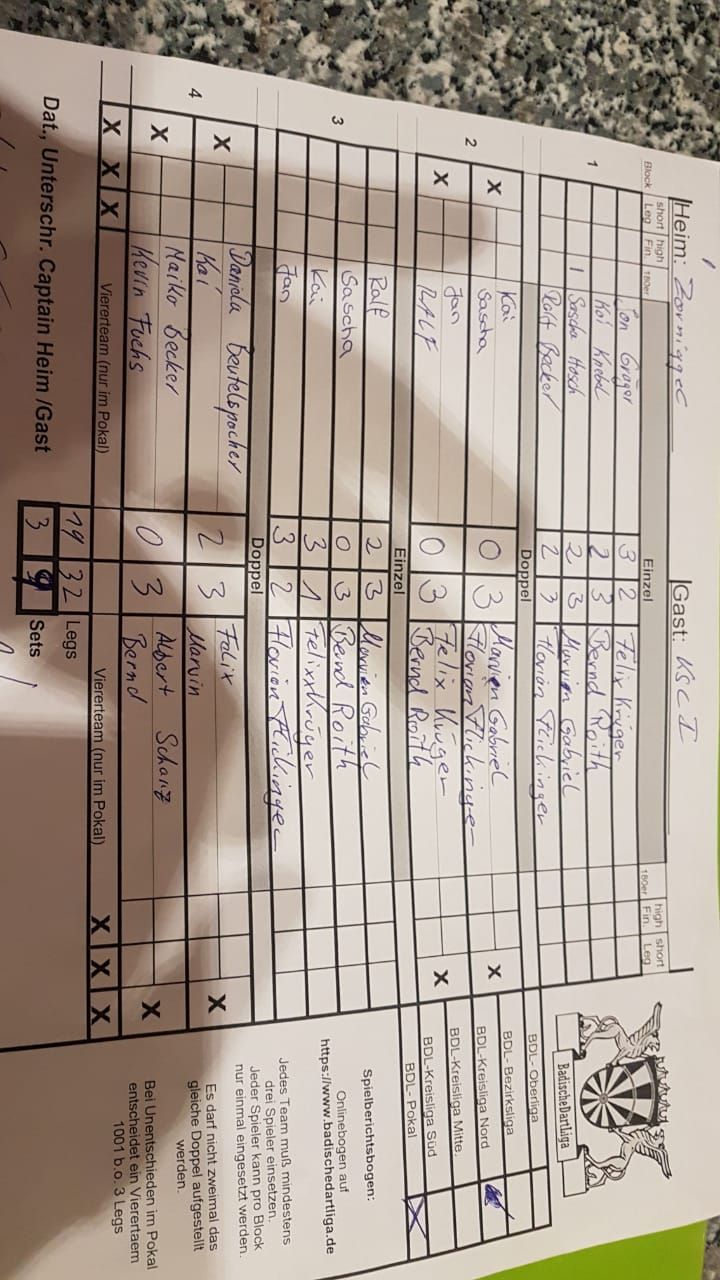 Heim: Zornigge Gast: KSC I
Block short Leg high Fin. 180er Einzel 180er high Fin. short Leg
1 Jan Gräger 3 2 Felix Krüger
Kai Knebel 2 3 Bernd Roith
1 Sascha Hosch 2 3 Marvin Gabriel
Ralf Becker 2 3 Florian Flickinger
Doppel
2 Kai Marvien Gabriel
X Sascha 0 3 Florian Flickinger X
Jan Felix Krüger
X RALF 0 3 Bernd Roith X
Einzel
3 Ralf 2 3 Marvien Gabriel
Sascha 0 3 Bernd Roith
Kai 3 1 Felix Krüger
Jan 3 2 Florian Flickinger
Doppel
4 Daniela Beutelspacher Felix
X Kai 2 3 Marvin X
Maiko Becker Albert Schanz
X Kevin Fuchs 0 3 Bernd X
X X X Viererteam (nur im Pokal) Viererteam (nur im Pokal) X X X
19 32 Legs
Dat., Unterschr. Captain Heim /Gast 3 9 Sets
BadischeDartLiga
BDL- Oberliga
BDL- Bezirksliga
BDL-Kreisliga Nord
BDL-Kreisliga Mitte.
BDL-Kreisliga Süd
BDL- Pokal X
Spielberichtsbogen:
Onlinebogen auf
https://www.badischedartliga.de
Jedes Team muß mindestens
drei Spieler einsetzen.
Jeder Spieler kann pro Block
nur einmal eingesetzt werden.
Es darf nicht zweimal das
gleiche Doppel aufgestellt
werden.
Bei Unentschieden im Pokal
entscheidet ein Viererteam
1001 b.o. 3 Legs